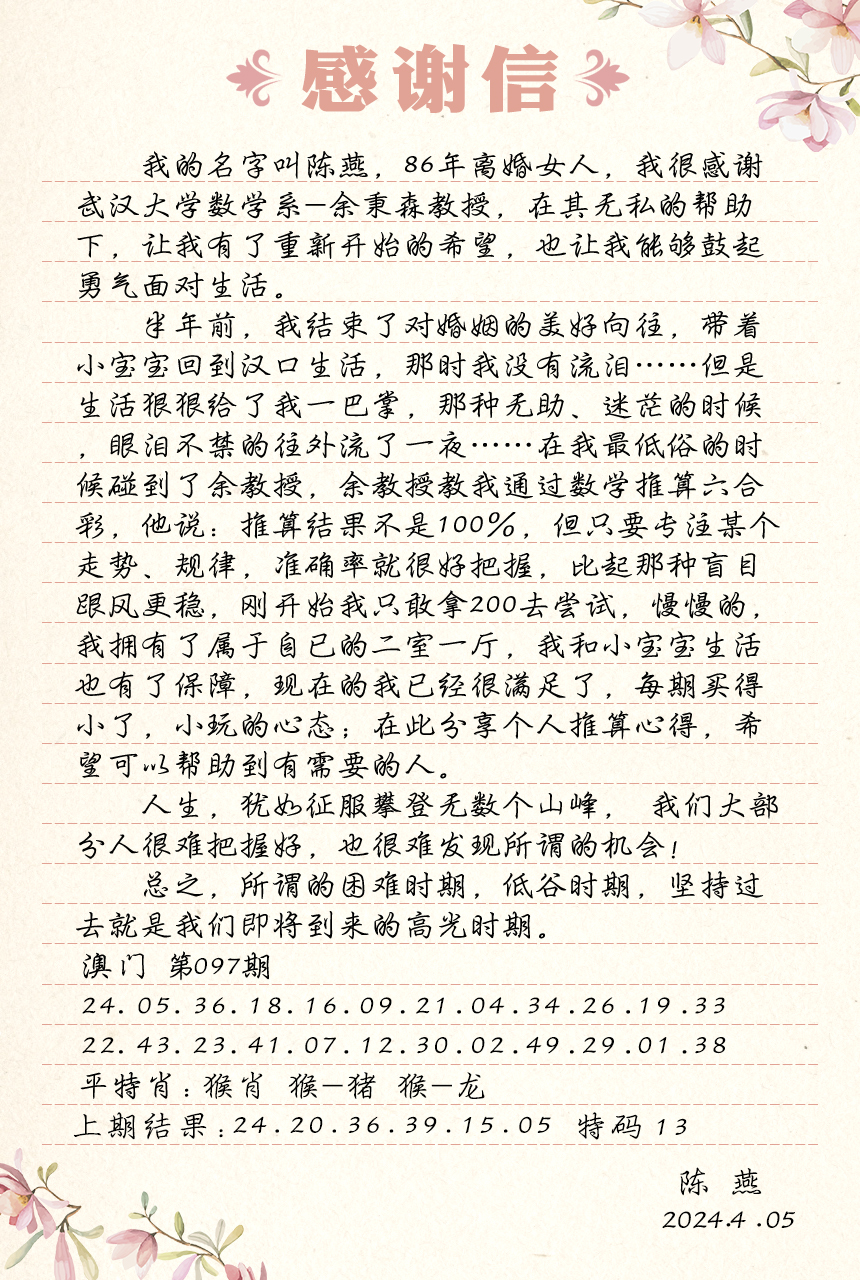 感谢信
我的名字叫陈燕，86年离婚女人，我很感谢
武汉大学数学系—余秉森教授，在其无私的帮助
下，让我有了重新开始的希望，也让我能够鼓起
勇气面对生活。
半年前，我结束了对婚姻的美好向往，带着
小宝宝回到汉口生活，那时我没有流泪……但是
生活狠狠给了我一巴掌，那种无助、迷茫的时候
，眼泪不禁的往外流了一夜……在我最低俗的时
候碰到了余教授，余教授教我通过数学推算六合
彩，他说：推算结果不是100%，但只要专注某个
走势、规律，准确率就很好把握，比起那种盲目
跟风更稳，刚开始我只敢拿200去尝试，慢慢的，
我拥有了属于自已的二室一厅，我和小宝宝生活
也有了保障，现在的我已经很满足了，每期买得
小了，小玩的心态；在此分享个人推算心得，希
望可以帮助到有需要的人。
人生，犹如征服攀登无数个山峰， 我们大部
分人很难把握好，也很难发现所谓的机会！
总之，所谓的困难时期，低谷时期，坚持过
去就是我们即将到来的高光时期。
澳门 第097期
24.05.36.18.16.09.21.04.34.26.19.33
22.43.23.41.07.12.30.02.49.29.01.38
平特肖：猴肖 猴—猪 猴—龙
上期结果：24.20.36.39.15.05 特码 13
陈 燕
2024.4 .05